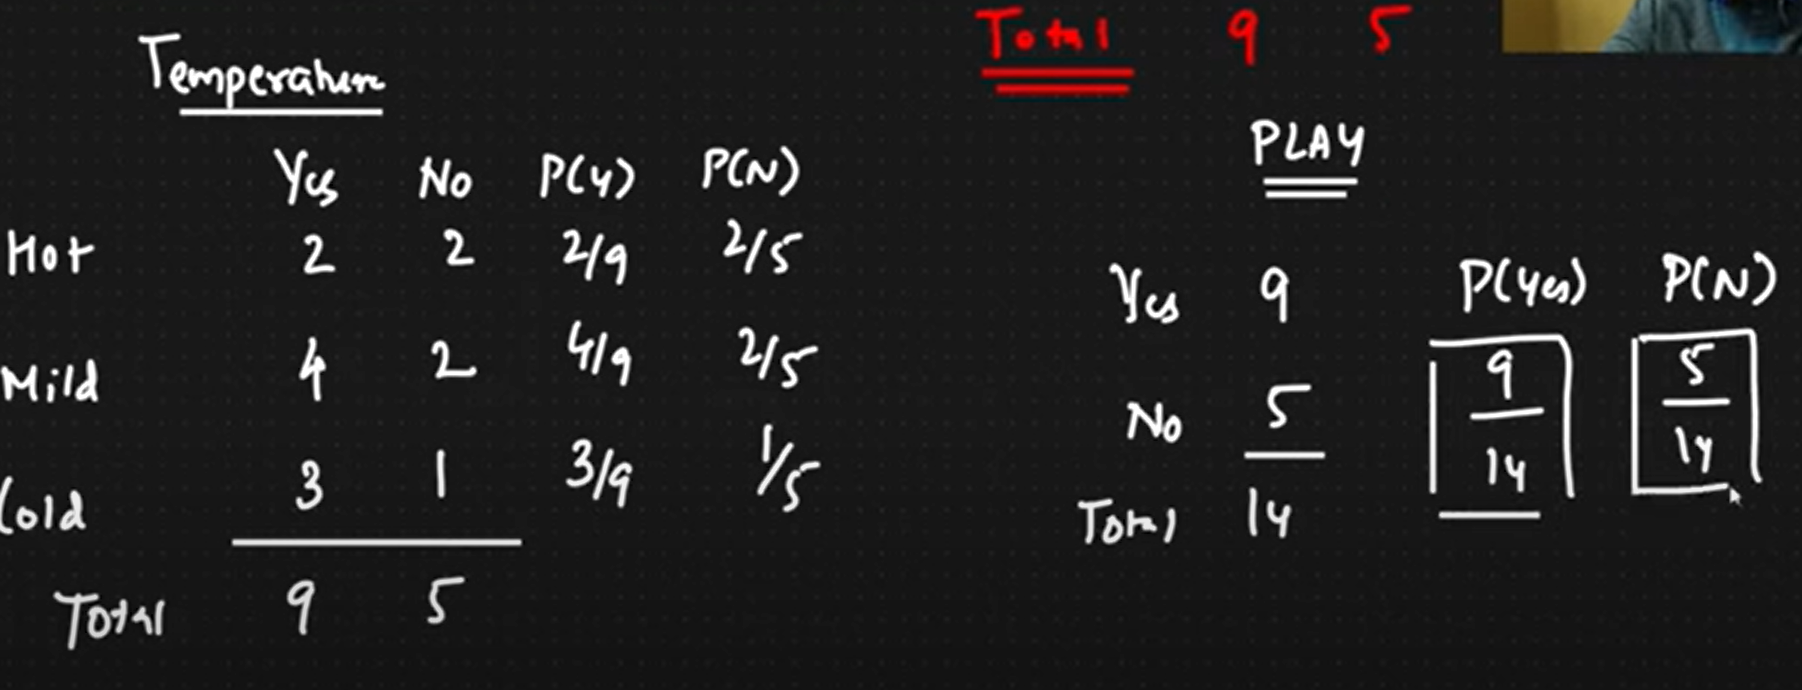 Total 9 5
Temperature
Yes No P(Y) P(N)
Hot 2 2 2/9 2/5
Mild 4 2 4/9 2/5
Cold 3 1 3/9 1/5
Total 9 5
PLAY
P(Yes) P(N)
Yes 9
9/14 5/14
No 5
Total 14